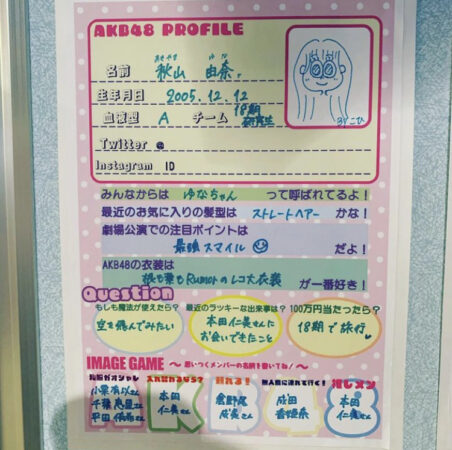 AKB48 PROFILE
名前 秋山 由奈。
あきやま ゆな
生年月日 2005.12.12
血液型 A チーム 18期研究生
Twitter @
Instagram ID
みんなからは ゆなちゃん って呼ばれてるよ！
最近のお気に入りの髪型は ストレートヘアー かな！
劇場公演での注目ポイントは
最強スマイル だよ！
AKB48の衣装は
根も葉もRumorのレコ大衣装 が一番好き！
Question
もしも魔法が使えたら？ 最近のラッキーな出来事は？ 100万円当たったら？
空を飛んでみたい
本田仁美さんに
お会いできたこと
18期で旅行
IMAGE GAME 〜思いつくメンバーの名前を書いてね！〜
私服がオシャレ
小栗有以さん
千葉恵里さん
平田侑希さん
本田
仁美さん
頼れる！
倉野尾
成美さん
無人島に連れて行く！
成田
香姫奈
推しメン
本田
仁美さん